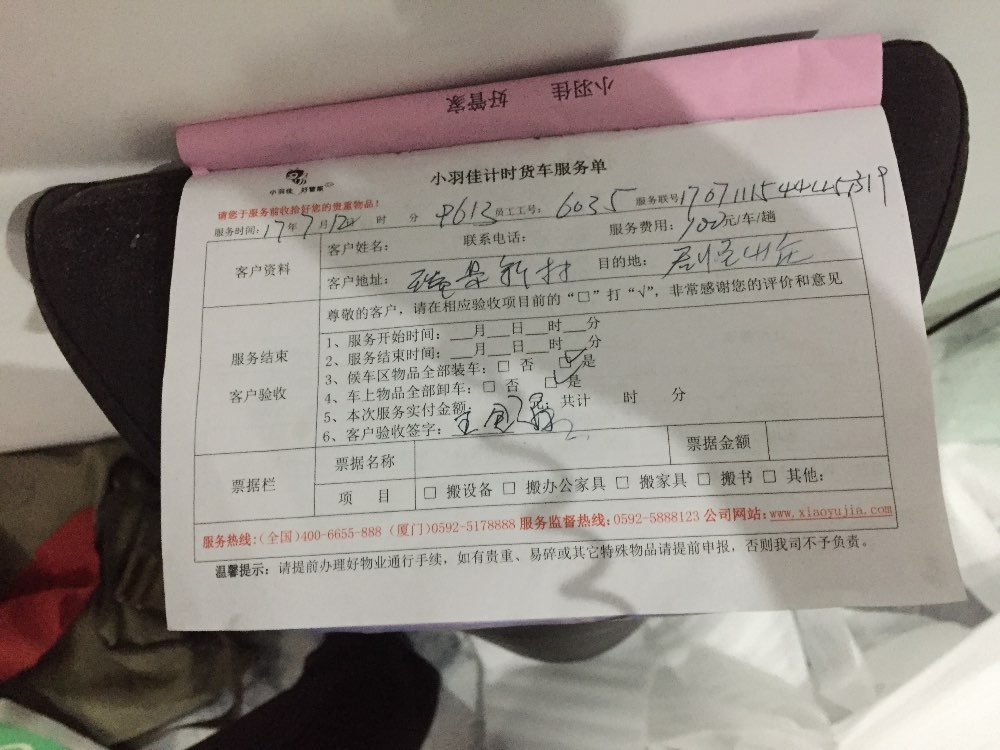 小羽佳 好管家
小羽佳 好管家
小羽佳计时货车服务单
请您于服务前收拾好您的贵重物品!
服务时间: 17年7月12日 时 分 9613 员工工号: 6035 服务联号
客户资料
客户姓名: 联系电话: 服务费用: 100元/车/趟
客户地址: 新村 目的地:
尊敬的客户,请在相应验收项目前的“□”打“√”,非常感谢您的评价和意见
服务结束
客户验收
1、服务开始时间:___月___日___时___分
2、服务结束时间:___月___日___时___分
3、候车区物品全部装车: □ 否 □ 是
4、车上物品全部卸车: □ 否 □ 是
5、本次服务实付金额 共计 时 分
6、客户验收签字:
票据栏
票据名称 票据金额
项 目 □ 搬设备 □ 搬办公家具 □ 搬家具 □ 搬书 □ 其他:
服务热线:(全国)400-6655-888 (厦门)0592-5178888 服务监督热线:0592-5888123 公司网站:www.xiaoyujia.com
温馨提示: 请提前办理好物业通行手续,如有贵重、易碎或其它特殊物品请提前申报,否则我司不予负责。